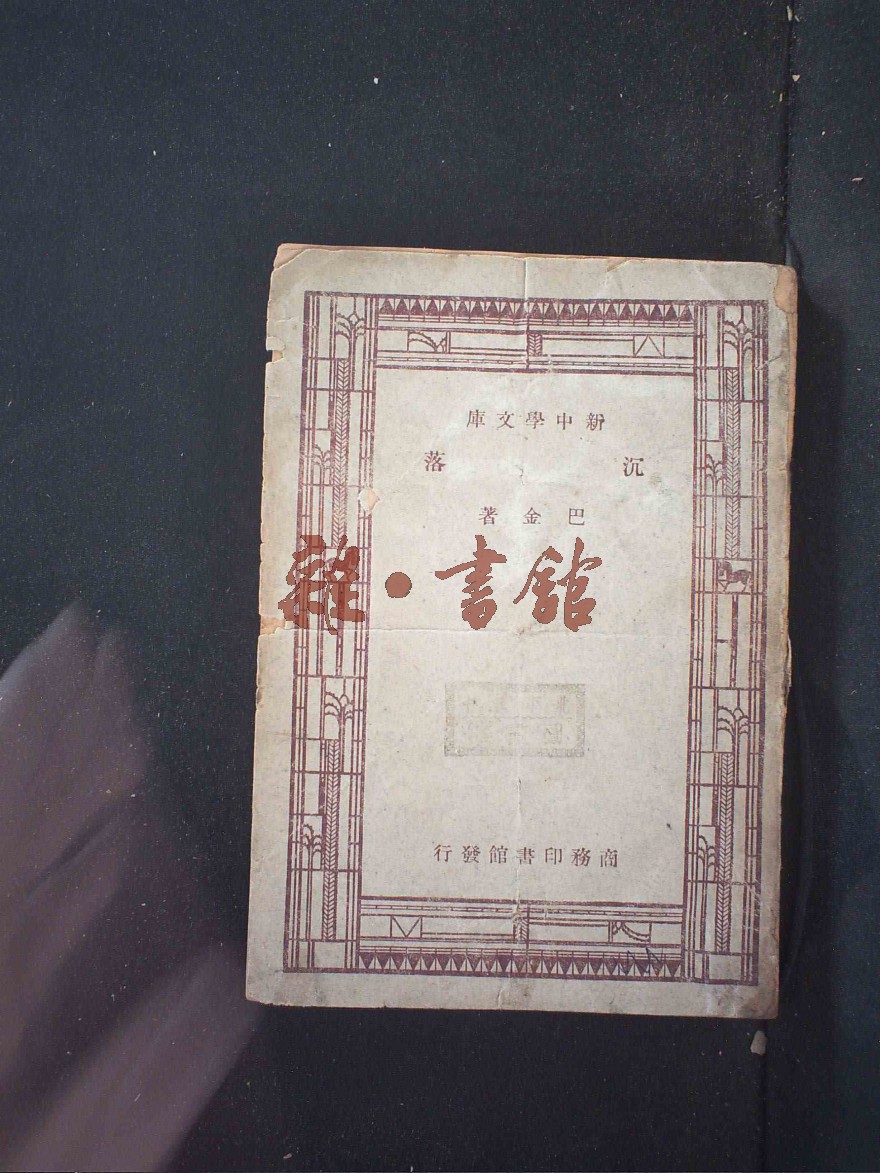 新中學文庫
沉落
巴金著
雜·書館
商務印書館發行